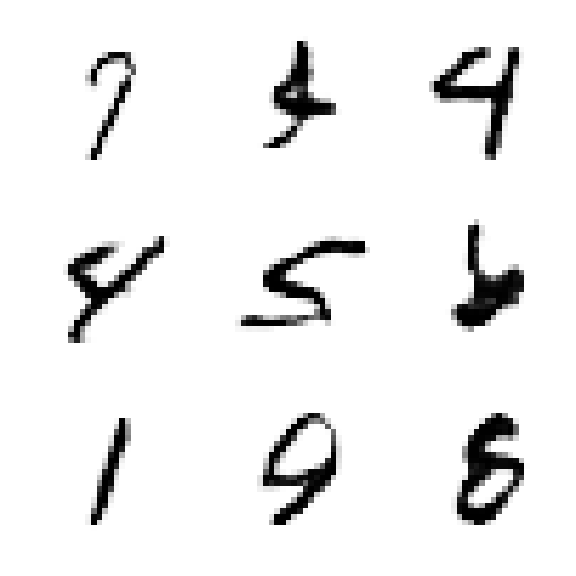 7 4
4 5 6
1 9 8